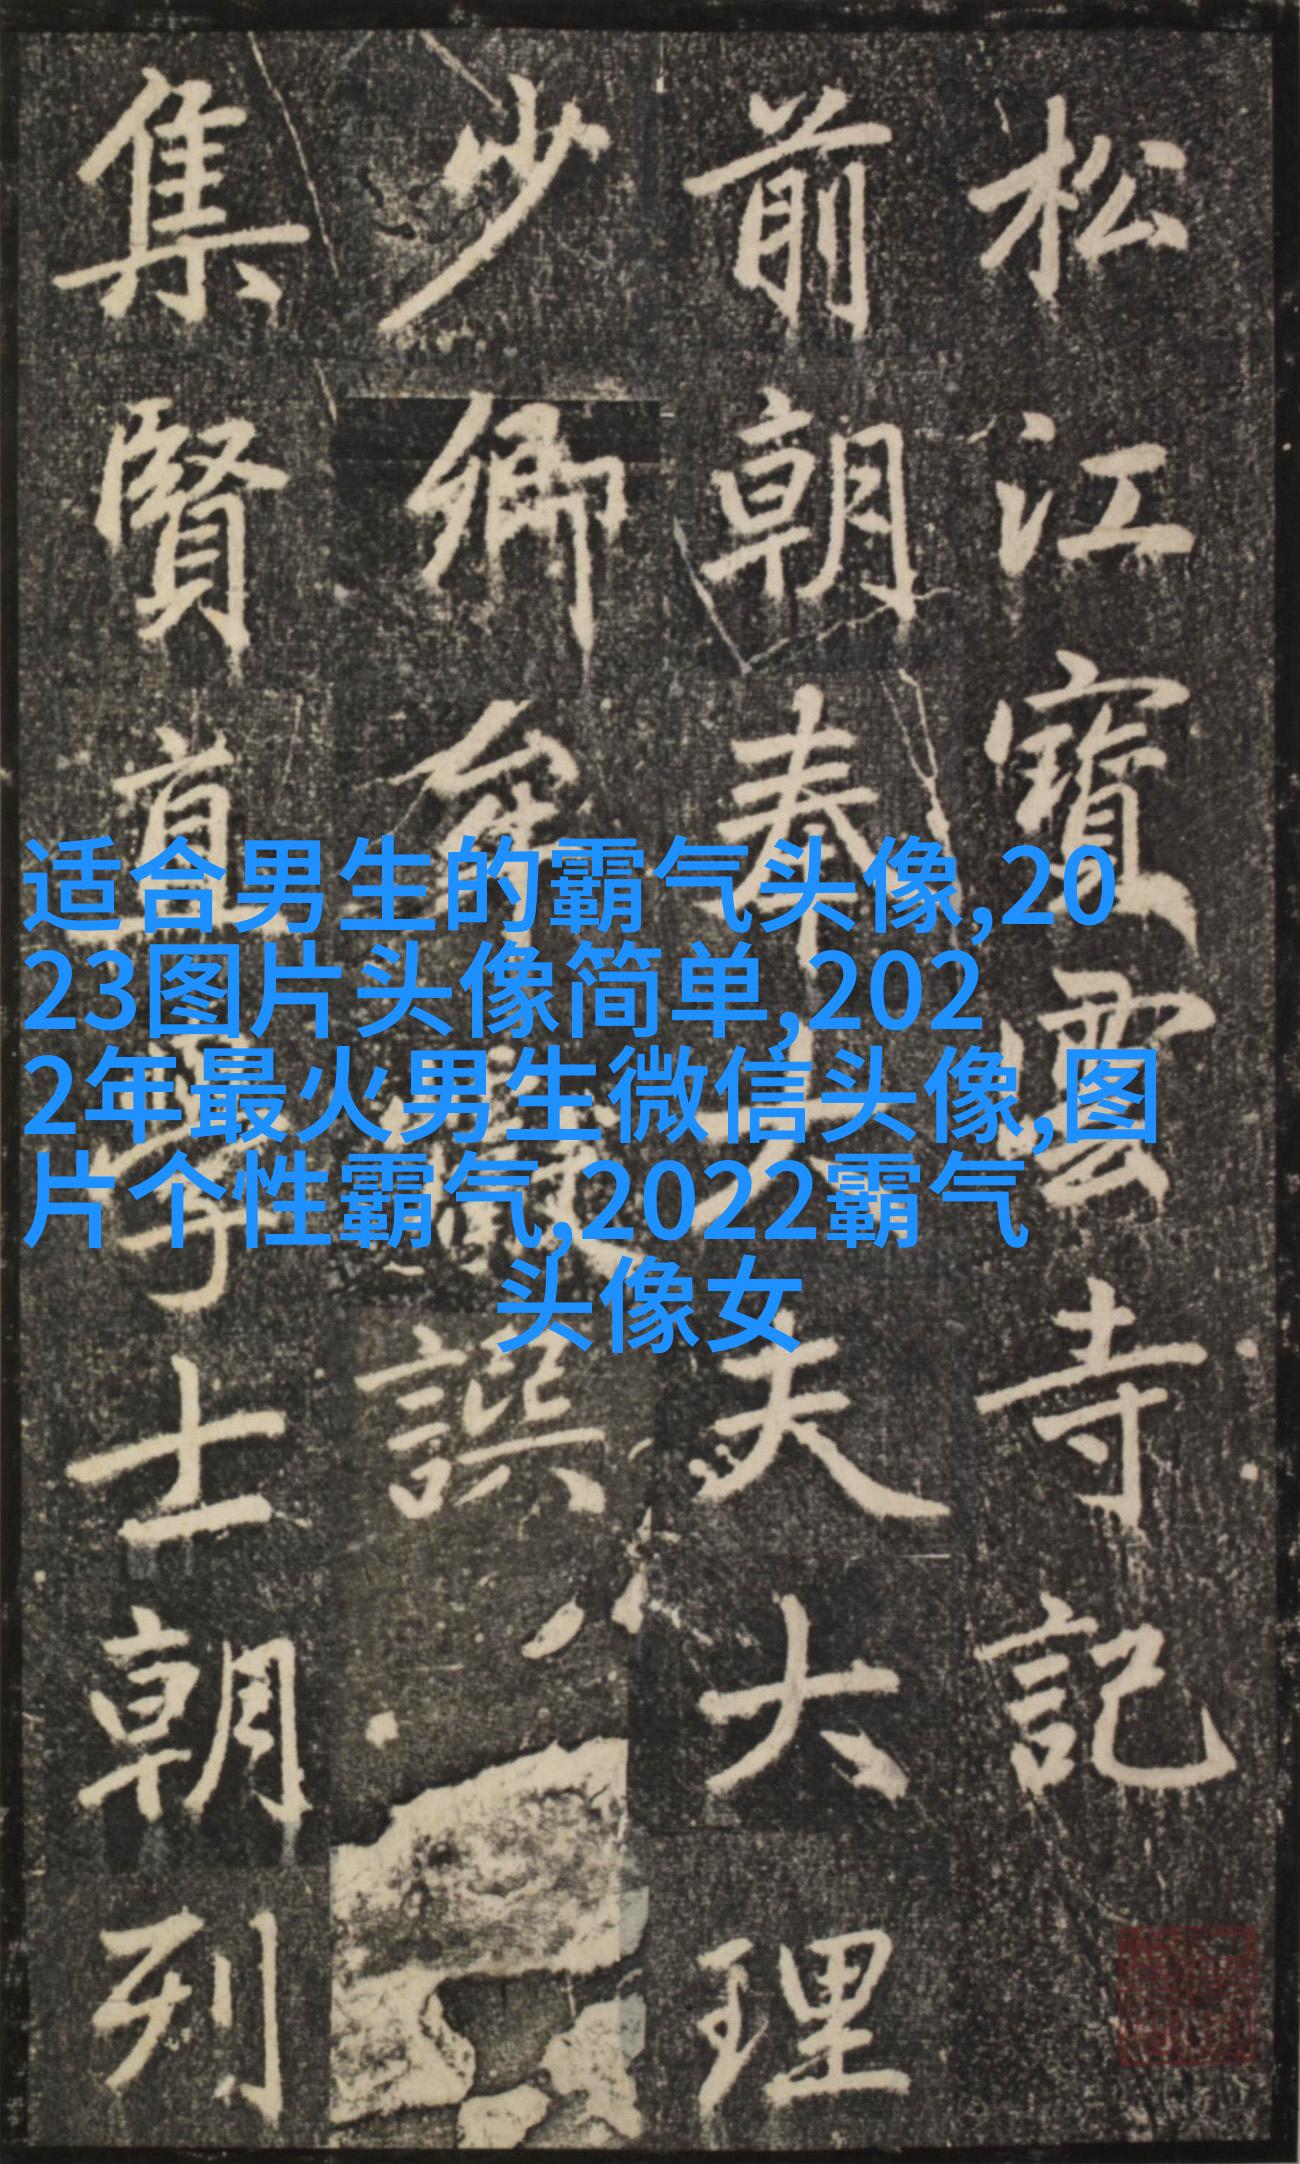 松江寶雲寺記
前朝奉大夫大理
少卿牟巘譔
集賢直學士朝列
适合男生的霸气头像,20
23图片头像简单,202
2年最火男生微信头像,图
片个性霸气,2022霸气
头像女